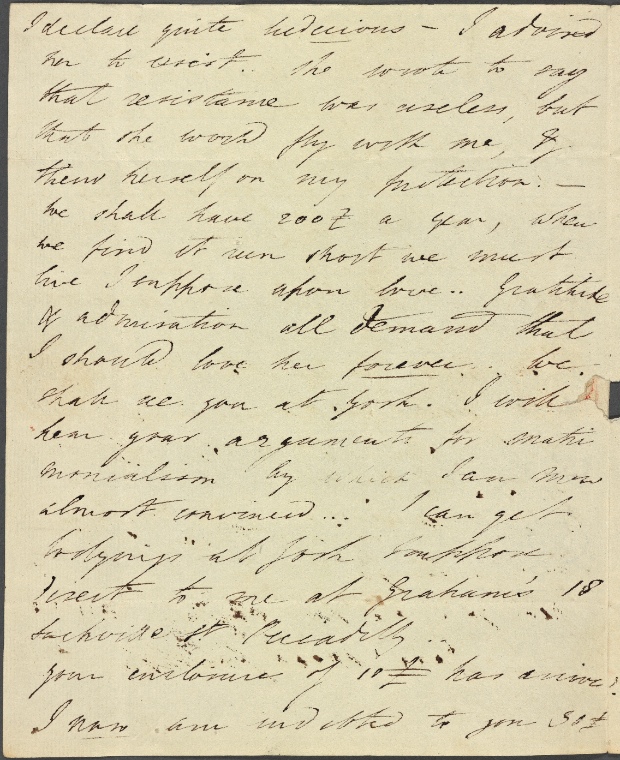 I declare quite ludicrous – I advised
her to resist. She wrote to say
that resistance was useless, but
that she would fly with me, &
threw herself on my protection. –
We shall have 200£ a year, when
we find it run short we must
live I suppose upon love.. Gratitude
& admiration all demand that
I should love her forever. We
shall see you at York. I will
hear your arguments for matri
monialism by which I am now
almost convinced... I can get
lodgings at York I suppose
Direct to me at Graham's 18
Sackville St Piccadilly..
Your enclosure of 10£ has arrived.
I now am indebted to you 30£